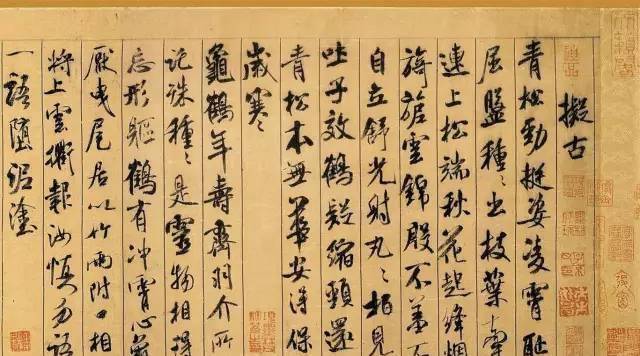 擬古
青松勁挺姿凌霄恥
屈盤種〻出枝葉牽
連上松端秋花起絳煙
旖旎雲錦殷不羞不
自立舒光射丸〻柏見
吐子效鶴疑縮頸還
青松本無華安得保
歲寒
龜鶴年壽齊羽介所
託殊種〻是靈物相得
忘形軀鶴有冲霄心龜
厭曳尾居以竹兩附口相
將上雲衢報汝慎勿語
一語墮泥塗